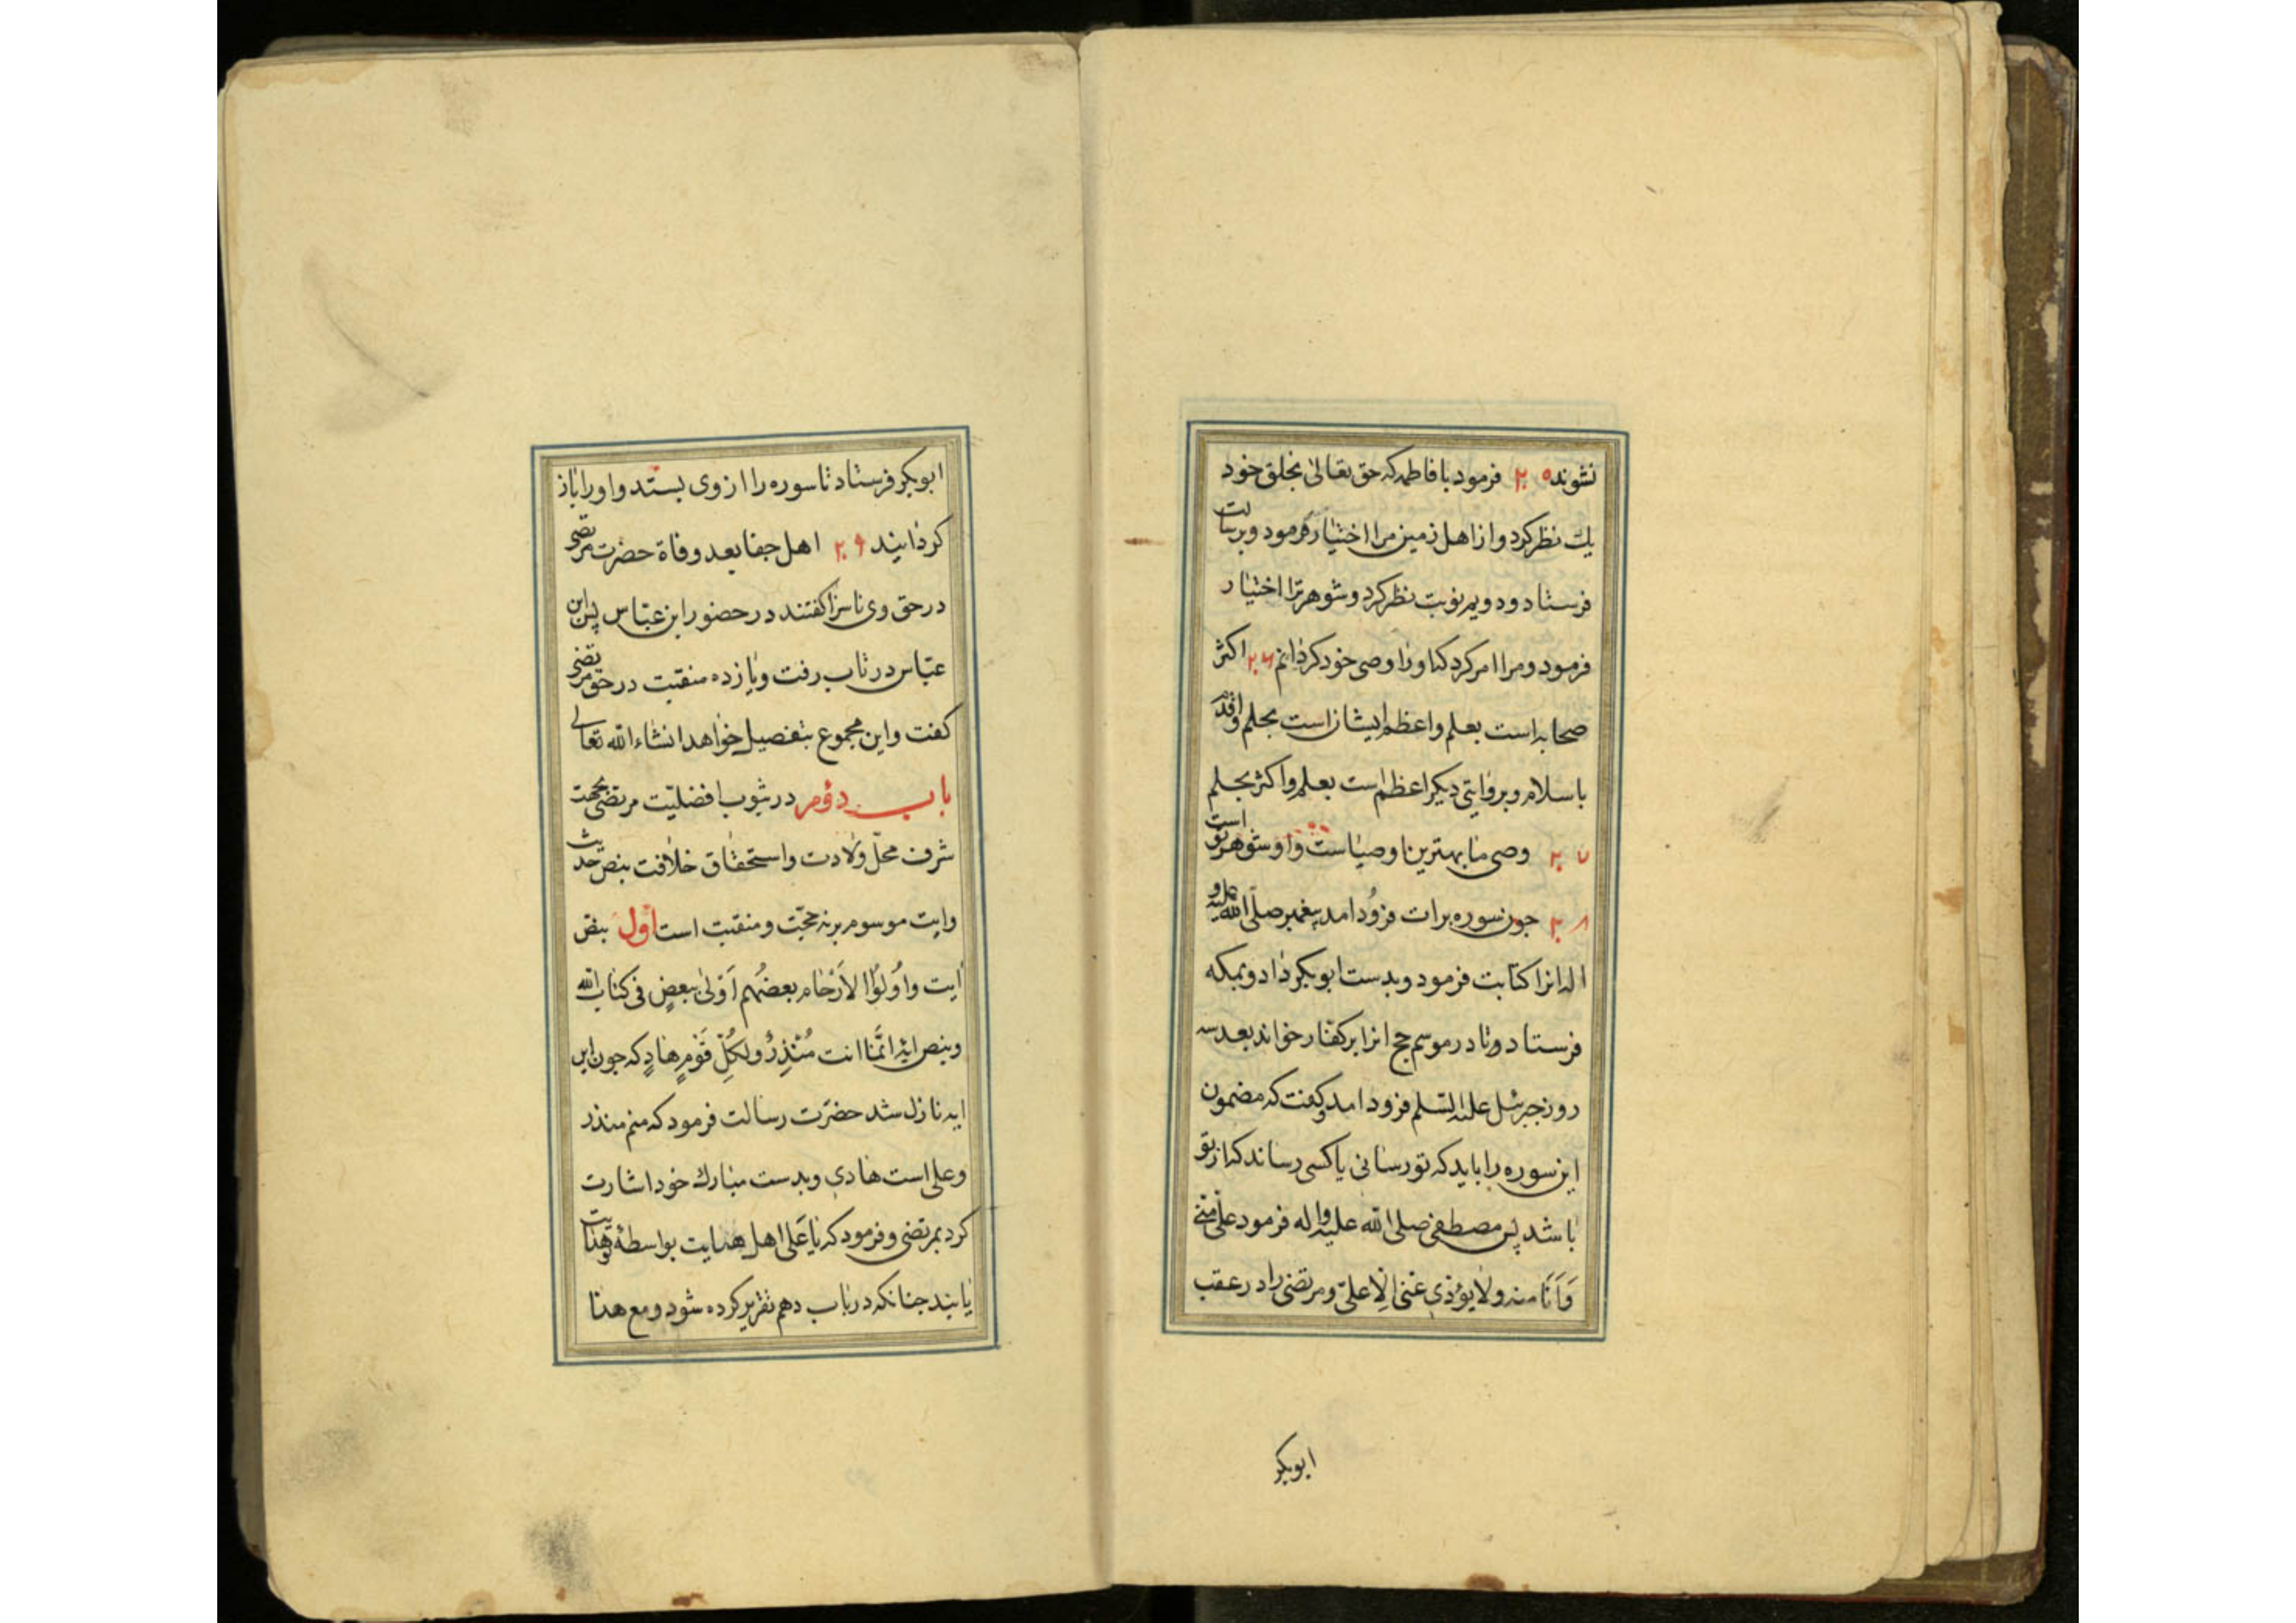 نشوند ۲۵ فرمود با فاطمه که حق تعالی بخلق خود
یک نظر کرد و از اهل زمین مرا اختیار فرمود و برسالت
فرستاد و دویم نوبت نظر کرد و شوهر ترا اختیار
فرمود و مرا امر کرد که او را وصی خود کردانم ۲۶ اکثر
صحابه است بعلم و اعظم ایشان است بحلم و اقدم
باسلام و بروایتی دیکر اعظم است بعلم و اکثر بحلم
۲۷ وصی ما بهترین اوصیاست و او شوهر تو است
۲۸ جون سوره برات فرود امد پیغمبر صلی الله علیه و
اله انرا کتابت فرمود و بدست ابوبکر داد و بمکه
فرستاد و تا در موسم حج انرا بر کفار خواند بعد سه
روز جبرئیل علیه السلم فرود امد و کفت که مضمون
این سوره را باید که تو رسانی یا کسی رساند که از تو
باشد پس مصطفی صلی الله علیه و اله فرمود علی منی
وَاَنَا منه ولا یؤذی عنی الا علی و مرتضی را در عقب
ابوبکر
ابوبکر فرستاد تا سوره را از وی بستد و او را باز
کردانیند ۲۹ اهل جفا بعد وفاة حضرت مرتضی
در حق وی ناسزا کفتند در حضور ابن عباس پس ابن
عباس در تاب رفت و یازده منقبت در حق مرتضی
کفت و این مجموع بتفصیل خواهد انشاء الله تعالی
باب دؤم در ثبوب افضلیت مرتضی بحجت
شرف محل ولادت و استحقاق خلافت بنص حدیث
و ایت موسوم برنه حجت و منقبت است اول بنص
ایت وَاُولُوا الاَرْحَام بعضُهم اَوْلیٰ ببعضٍ فی کتاب الله
و بنص ایهٔ انَّمَا انت مُنْذِرُ ولِکُلِّ قَوْمٍ هَادٍ که جون این
ایه نازل شد حضرت رسالت فرمود که منم منذر
و علی است هادی و بدست مبارک خود اشارت
کرد بمرتضی و فرمود که یا عَلی اهل هدایت بواسطهٔ تو هدایت
یابند جنانکه در باب دهم تقریر کرده شود و مع هذا